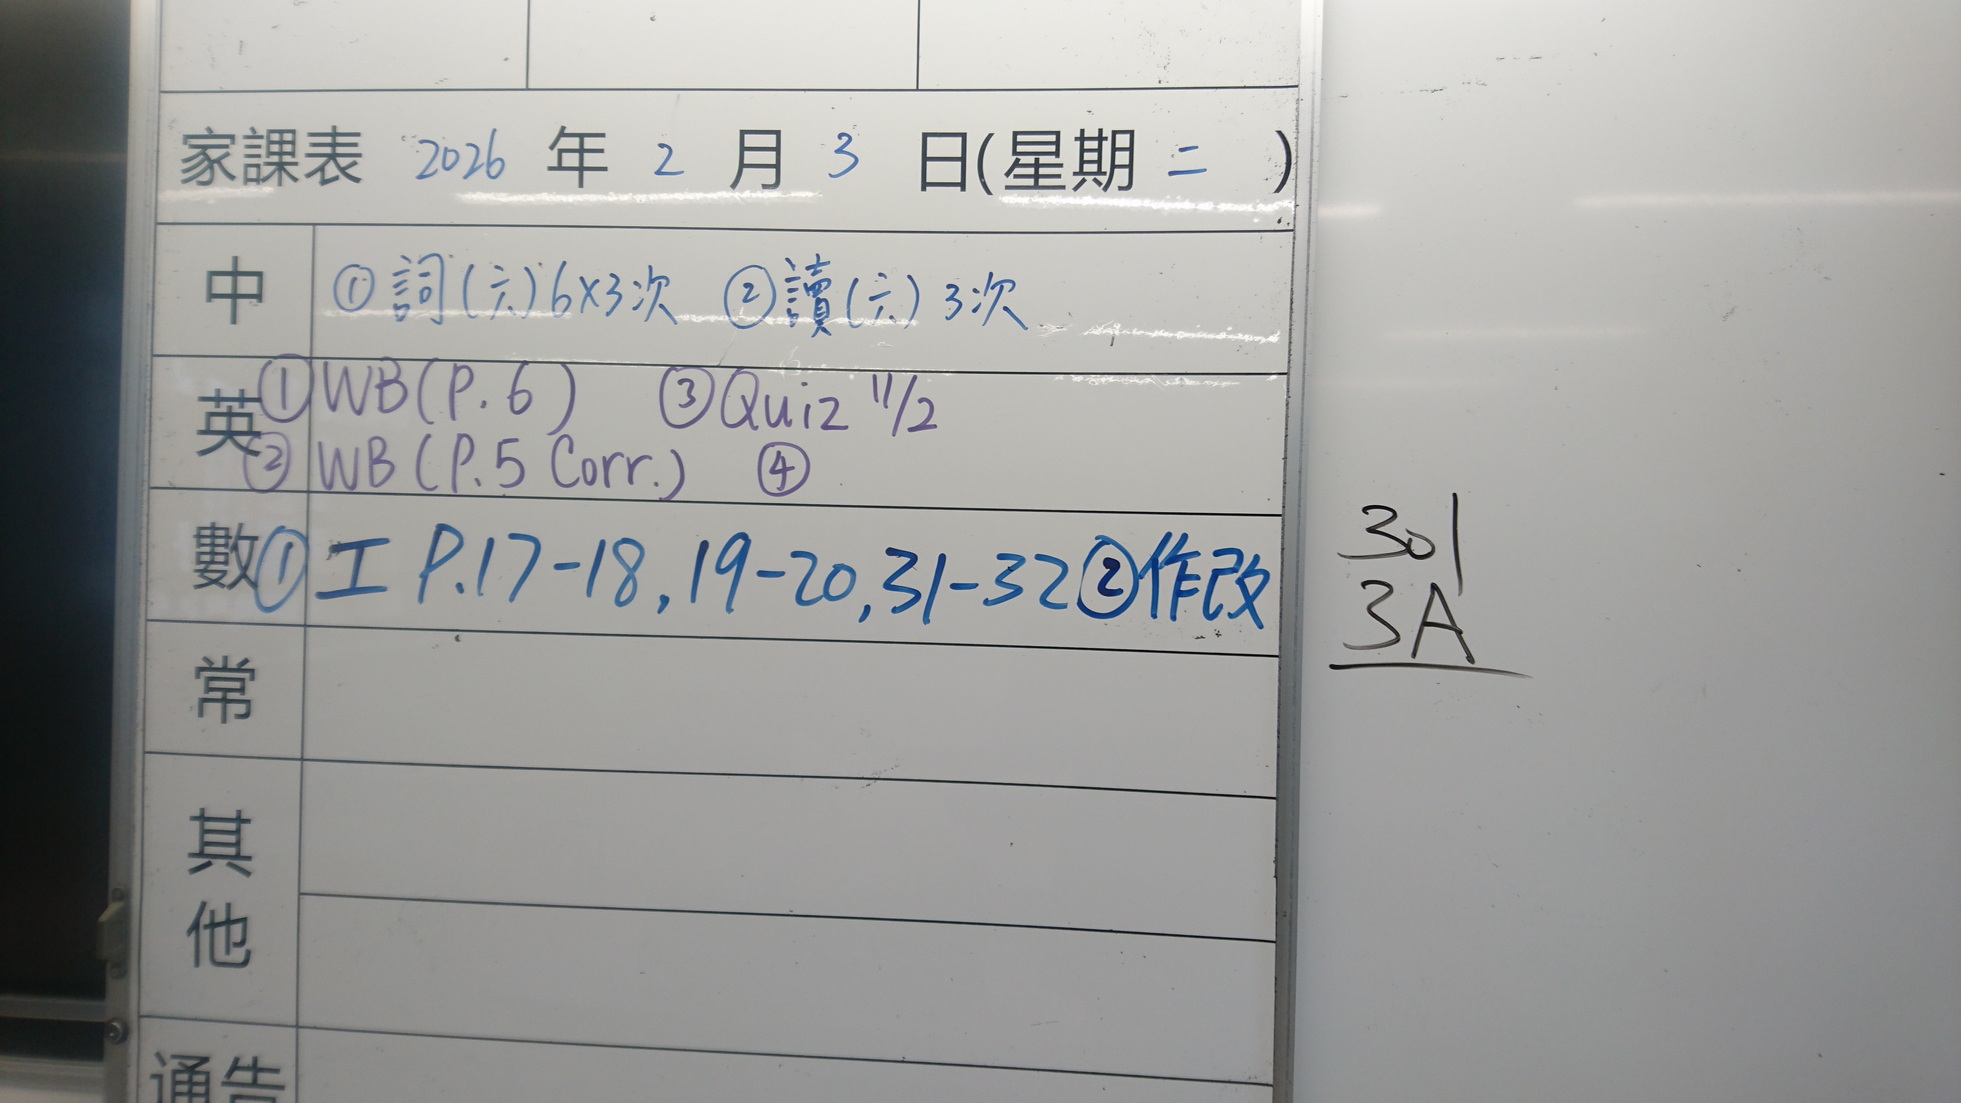 家課表 2026 年 2 月 3 日(星期 二 )
中 ①詞(六)6×3次 ②讀(六)3次
英 ①WB(P.6) ③Quiz 11/2
②WB(P.5 Corr.) ④
數 ①工 P.17-18,19-20,31-32②作改
301
3A
常
其他
通告